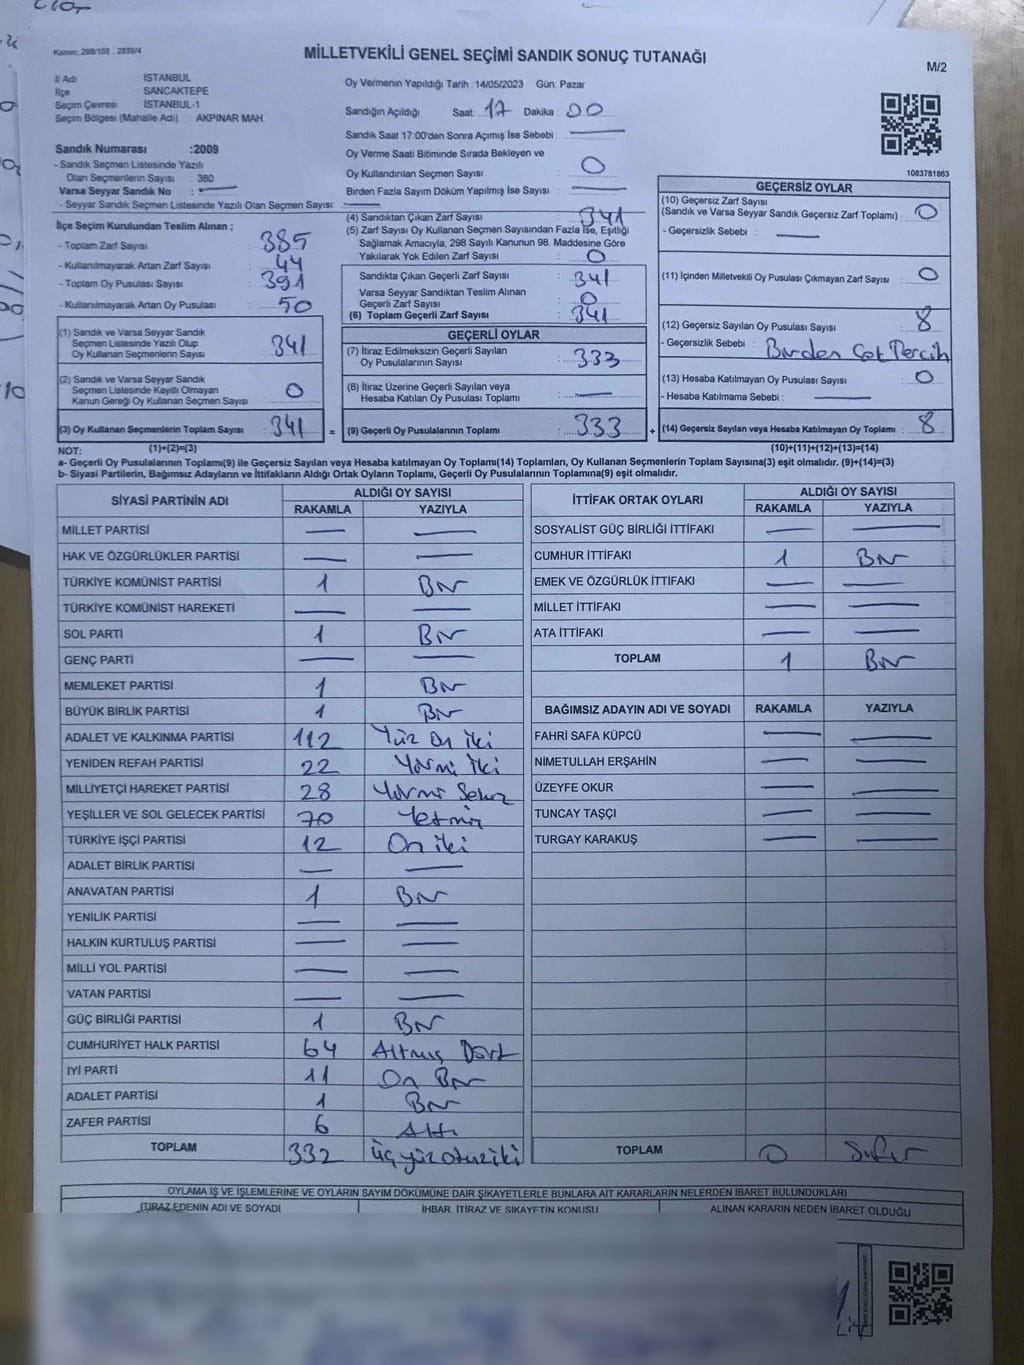 Kanun: 298/105 ; 2839/4
MİLLETVEKİLİ GENEL SEÇİMİ SANDIK SONUÇ TUTANAĞI
M/2
İl Adı : İSTANBUL
İlçe : SANCAKTEPE
Seçim Çevresi : İSTANBUL-1
Seçim Bölgesi (Mahalle Adı) : AKPINAR MAH.
Sandık Numarası :2009
- Sandık Seçmen Listesinde Yazılı
Olan Seçmenlerin Sayısı : 380
Varsa Seyyar Sandık No :
- Seyyar Sandık Seçmen Listesinde Yazılı Olan Seçmen Sayısı:
Oy Vermenin Yapıldığı Tarih :14/05/2023 Gün: Pazar
Sandığın Açıldığı Saat: 17 Dakika: 00
Sandık Saat 17:00'den Sonra Açımış İse Sebebi :
Oy Verme Saati Bitiminde Sırada Bekleyen ve
Oy Kullandırılan Seçmen Sayısı : 0
Birden Fazla Sayım Döküm Yapılmış İse Sayısı :
1083781863
İlçe Seçim Kurulundan Teslim Alınan ;
- Toplam Zarf Sayısı : 385
- Kullanılmayarak Artan Zarf Sayısı : 44
- Toplam Oy Pusulası Sayısı : 391
- Kullanılmayarak Artan Oy Pusulası : 50
(1) Sandık ve Varsa Seyyar Sandık
Seçmen Listesinde Yazılı Olup
Oy Kullanan Seçmenlerin Sayısı : 341
(2) Sandık ve Varsa Seyyar Sandık
Seçmen Listesinde Kayıtlı Olmayan
Kanun Gereği Oy Kullanan Seçmen Sayısı : 0
(3) Oy Kullanan Seçmenlerin Toplam Sayısı : 341 =
(4) Sandıktan Çıkan Zarf Sayısı : 341
(5) Zarf Sayısı Oy Kullanan Seçmen Sayısından Fazla İse, Eşitliği
Sağlamak Amacıyla, 298 Sayılı Kanunun 98. Maddesine Göre
Yakılarak Yok Edilen Zarf Sayısı : 0
Sandıkta Çıkan Geçerli Zarf Sayısı : 341
Varsa Seyyar Sandıktan Teslim Alınan
Geçerli Zarf Sayısı : 0
(6) Toplam Geçerli Zarf Sayısı : 341
GEÇERLİ OYLAR
(7) İtiraz Edilmeksizin Geçerli Sayılan
Oy Pusulalarının Sayısı : 333
(8) İtiraz Üzerine Geçerli Sayılan veya
Hesaba Katılan Oy Pusulası Toplamı :
(9) Geçerli Oy Pusulalarının Toplamı : 333 +
GEÇERSİZ OYLAR
(10) Geçersiz Zarf Sayısı
(Sandık ve Varsa Seyyar Sandık Geçersiz Zarf Toplamı) : 0
- Geçersizlik Sebebi :
(11) İçinden Milletvekili Oy Pusulası Çıkmayan Zarf Sayısı : 0
(12) Geçersiz Sayılan Oy Pusulası Sayısı : 8
- Geçersizlik Sebebi : Birden Çok Tercih
(13) Hesaba Katılmayan Oy Pusulası Sayısı : 0
- Hesaba Katılmama Sebebi :
(14) Geçersiz Sayılan veya Hesaba Katılmayan Oy Toplamı : 8
NOT: (1)+(2)=(3) (10)+(11)+(12)+(13)=(14)
a- Geçerli Oy Pusulalarının Toplamı(9) ile Geçersiz Sayılan veya Hesaba katılmayan Oy Toplamı(14) Toplamları, Oy Kullanan Seçmenlerin Toplam Sayısına(3) eşit olmalıdır. (9)+(14)=(3)
b- Siyasi Partilerin, Bağımsız Adayların ve İttifakların Aldığı Ortak Oyların Toplamı, Geçerli Oy Pusulalarının Toplamına(9) eşit olmalıdır.
SİYASİ PARTİNİN ADI ALDIĞI OY SAYISI
RAKAMLA YAZIYLA
MİLLET PARTİSİ
HAK VE ÖZGÜRLÜKLER PARTİSİ
TÜRKİYE KOMÜNİST PARTİSİ 1 Bir
TÜRKİYE KOMÜNİST HAREKETİ
SOL PARTİ 1 Bir
GENÇ PARTİ
MEMLEKET PARTİSİ 1 Bir
BÜYÜK BİRLİK PARTİSİ 1 Bir
ADALET VE KALKINMA PARTİSİ 112 Yüz On iki
YENİDEN REFAH PARTİSİ 22 Yirmi İki
MİLLİYETÇİ HAREKET PARTİSİ 28 Yirmi Sekiz
YEŞİLLER VE SOL GELECEK PARTİSİ 70 Yetmiş
TÜRKİYE İŞÇİ PARTİSİ 12 On iki
ADALET BİRLİK PARTİSİ
ANAVATAN PARTİSİ 1 Bir
YENİLİK PARTİSİ
HALKIN KURTULUŞ PARTİSİ
MİLLİ YOL PARTİSİ
VATAN PARTİSİ
GÜÇ BİRLİĞİ PARTİSİ 1 Bir
CUMHURİYET HALK PARTİSİ 64 Altmış Dört
İYİ PARTİ 11 On Bir
ADALET PARTİSİ 1 Bir
ZAFER PARTİSİ 6 Altı
TOPLAM 332 üç yüz otuz iki
İTTİFAK ORTAK OYLARI ALDIĞI OY SAYISI
RAKAMLA YAZIYLA
SOSYALİST GÜÇ BİRLİĞİ İTTİFAKI
CUMHUR İTTİFAKI 1 Bir
EMEK VE ÖZGÜRLÜK İTTİFAKI
MİLLET İTTİFAKI
ATA İTTİFAKI
TOPLAM 1 Bir
BAĞIMSIZ ADAYIN ADI VE SOYADI RAKAMLA YAZIYLA
FAHRİ SAFA KÜPCÜ
NİMETULLAH ERŞAHİN
ÜZEYFE OKUR
TUNCAY TAŞÇI
TURGAY KARAKUŞ
TOPLAM 0 Sıfır
OYLAMA İŞ VE İŞLEMLERİNE VE OYLARIN SAYIM DÖKÜMÜNE DAİR ŞİKAYETLERLE BUNLARA AİT KARARLARIN NELERDEN İBARET BULUNDUKLARI
İTİRAZ EDENİN ADI VE SOYADI İHBAR, İTİRAZ VE ŞİKAYETİN KONUSU ALINAN KARARIN NEDEN İBARET OLDUĞU